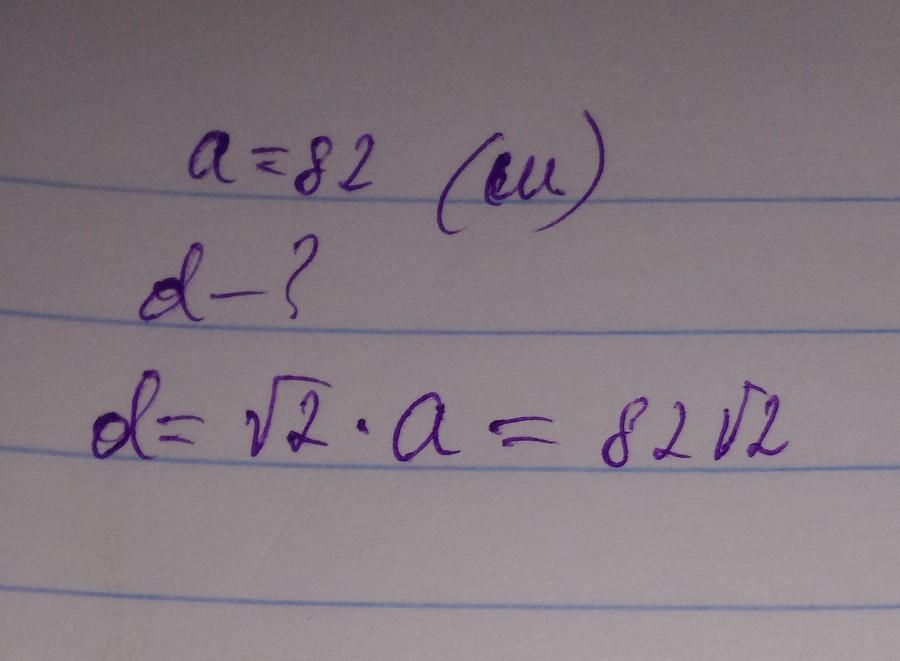 a = 82 (см)
d – ?
d = √2 · a = 82√2